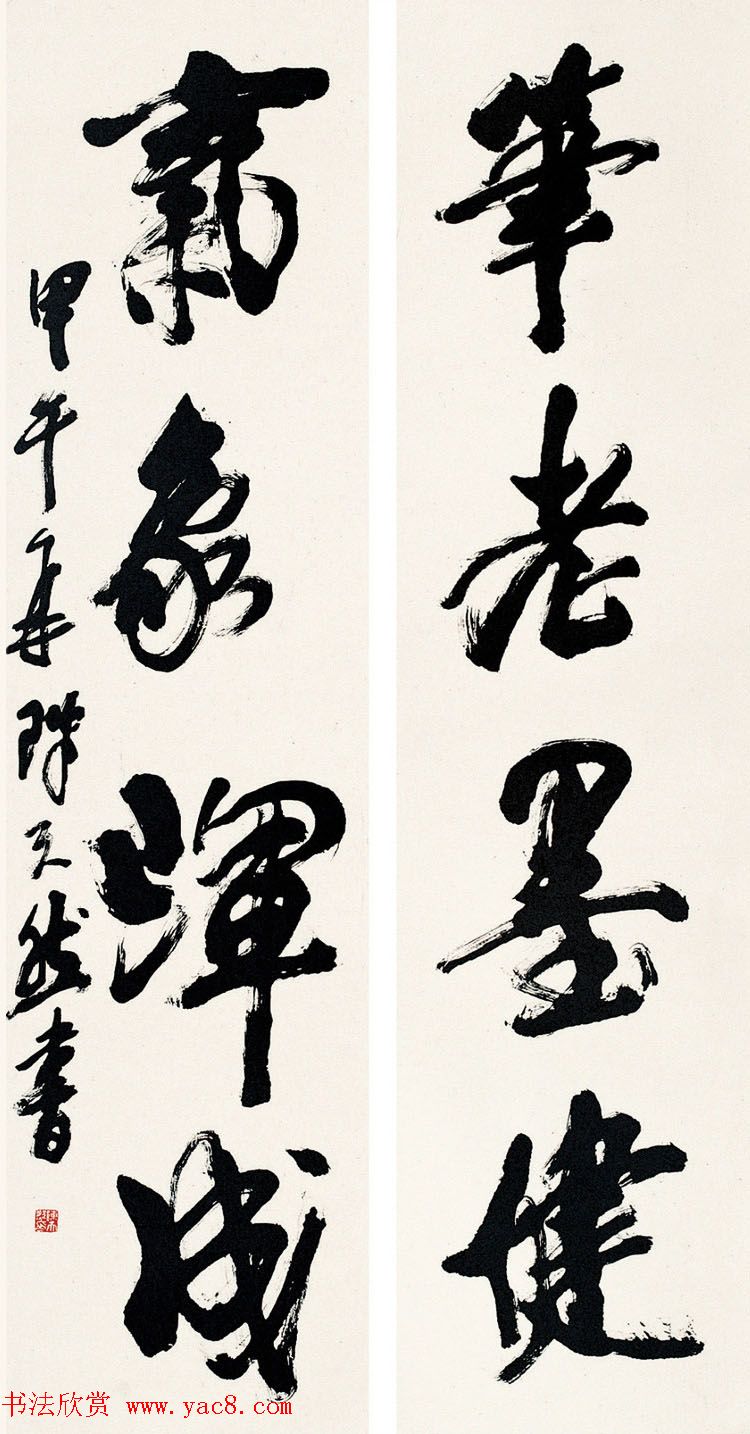 筆老墨健
氣象渾成
甲午年陳天然書
书法欣赏 www.yac8.com